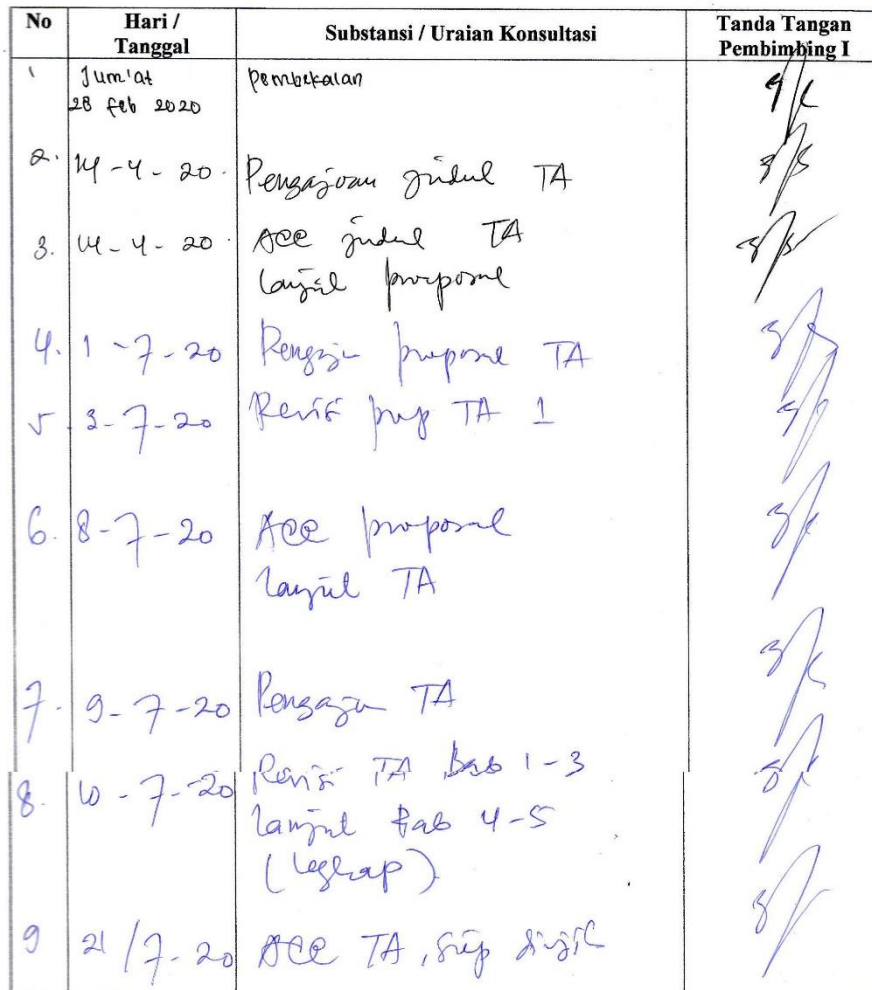 No Hari / Tanggal Substansi / Uraian Konsultasi Tanda Tangan Pembimbing I
1 Jum'at Pembekalan
28 feb 2020
2. 14-4-20. Pengajuan judul TA
3. 14-4-20. ACC judul TA
lanjut proposal
4. 1-7-20 Pengaju proposal TA
5 3-7-20 Revisi prop TA 1
6. 8-7-20 ACC proposal
lanjut TA
7. 9-7-20 Pengaju TA
8. 10-7-20 Revisi TA Bab 1-3
lanjut Bab 4-5
(lengkap)
9 21/7-20 ACC TA, siap diuji